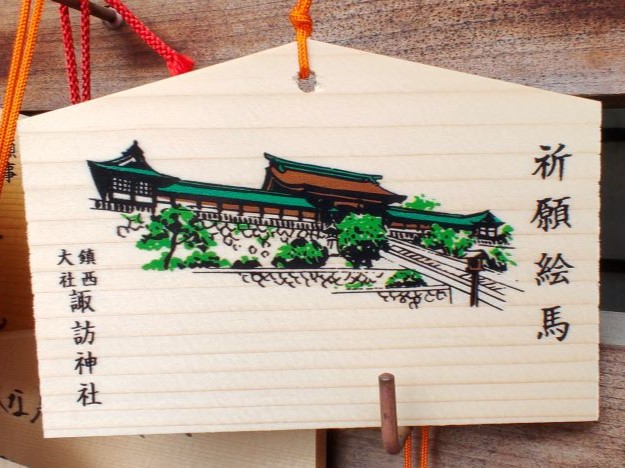 祈願絵馬
鎮西大社
諏訪神社